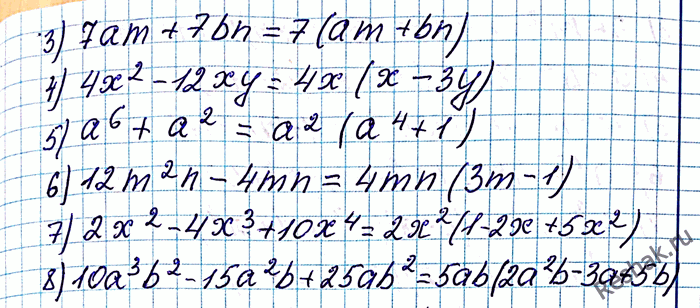 3) 7am + 7bn = 7(am + bn)
4) 4x² - 12xy = 4x(x - 3y)
5) a⁶ + a² = a²(a⁴ + 1)
6) 12m²n - 4mn = 4mn(3m - 1)
7) 2x² - 4x³ + 10x⁴ = 2x²(1 - 2x + 5x²)
8) 10a³b² - 15a²b + 25ab² = 5ab(2a²b - 3a+5b)
reshak.ru